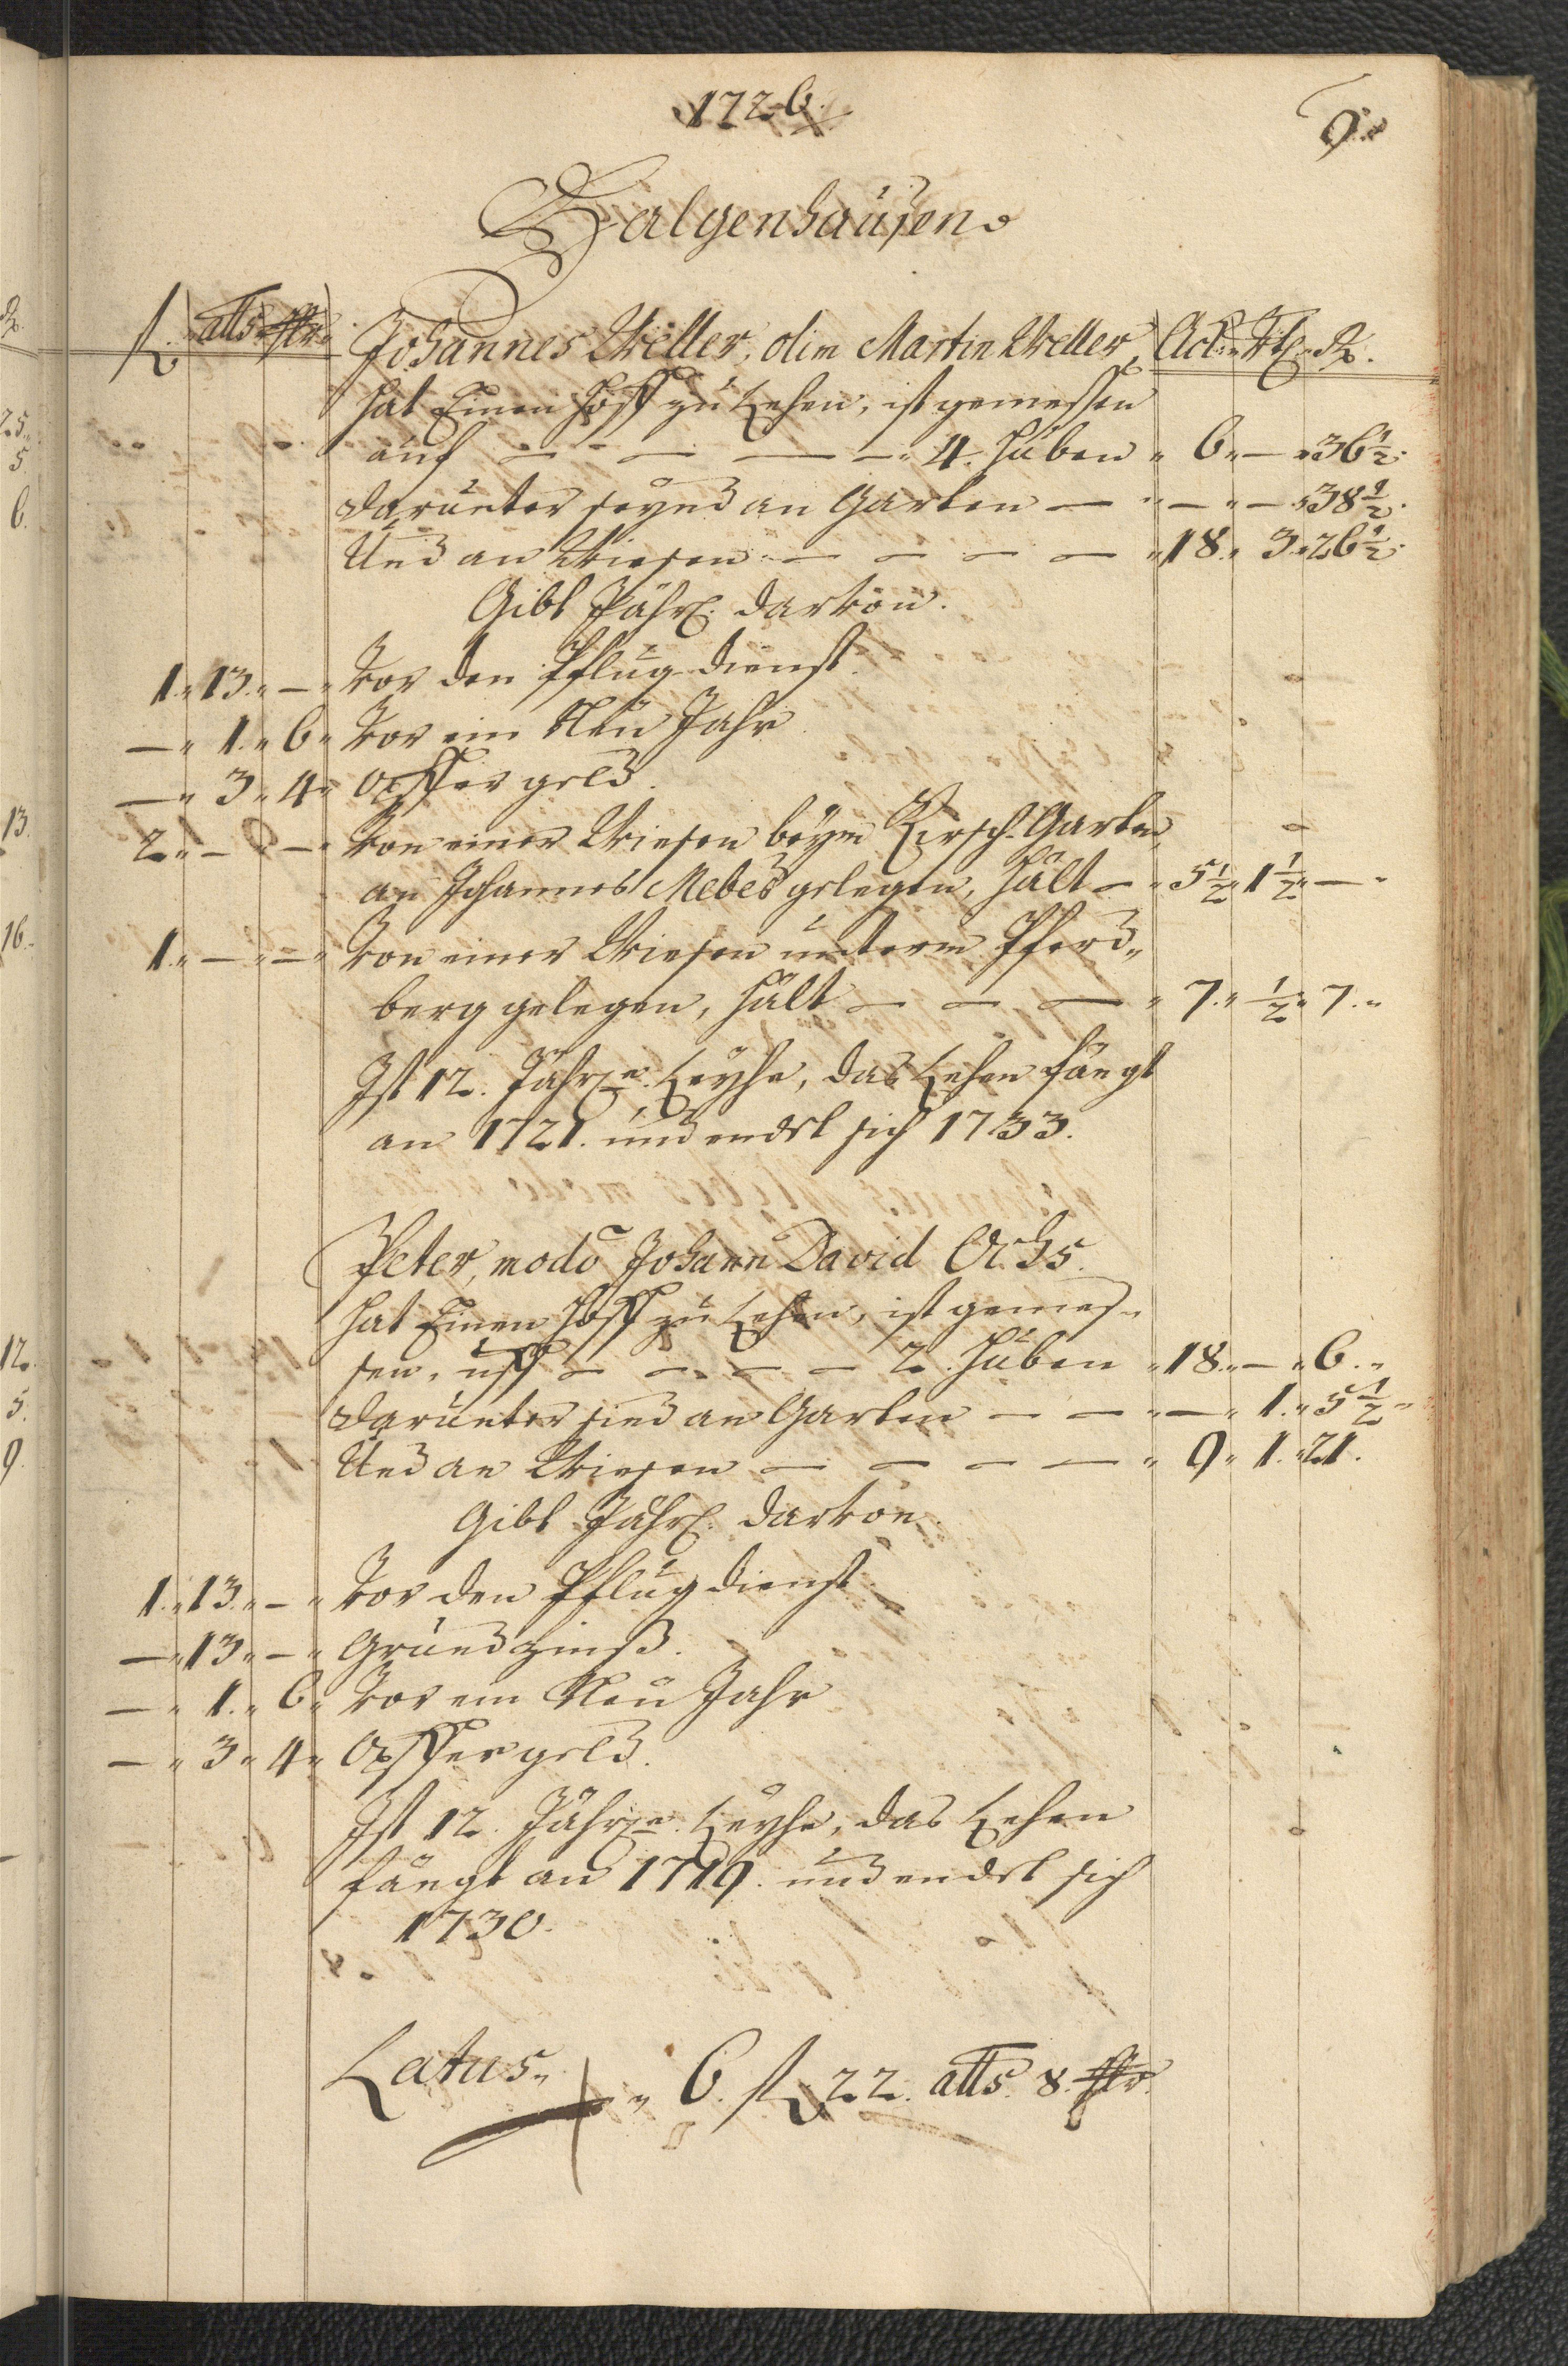 1726.
9.
Balgenhausen.
fl. atts. hlr. Johannes Weller, olim Martin Weller, Ack. Vtl. R.
hat Einen Hoff zu Lehen, ist gemessen
auf — — — — 4. Huben " 6. " — " 36 1/2.
Darunter seynd an Garten — " — " — " 38 1/2.
Und an Wiesen — — — — " 18. " 3. " 26 1/2.
Gibt Jährl. darvon.
1. " 13. " — " Vor den Pflug dienst.
— " 1. " 6 " Vor ein Neu Jahr
— " 3 " 4 " Opffer geld.
2. " — " — " Von einer Wiesen beym Kirsch-Garten,
an Johannes Mebes gelegen, hält — " 5 1/2 " 1 1/2 " — "
1. " — " — " Von einer Wiesen unterm Pferd„
berg gelegen, hält — — — " 7. " 1/2 " 7. "
Ist 12. Jährge. Leyhe, das Lehen fängt
an 1721. und endet sich 1733.
Peter, modo Johann David Ochs.
hat Einen Hoff zu Lehen, ist gemes„
sen, uff — — — — 2. Huben " 18. " — " 6. "
Darunter sind an Garten — — " — " 1. " 5 1/2 "
Und an Wiesen — — — — " 9 " 1. " 21.
Gibt Jährl. darvon.
1. " 13. " — " Vor den Pflug dienst.
— " 13 " — " Grund zinß.
— " 1. " 6 " Vor ein Neu Jahr
— " 3 " 4 " Opffer geld.
Ist 12. Jährge. Leyhe, das Lehen
fängt an 1719. und endet sich
1730.
Latus. " 6. fl. 22. atts. 8. hlr.